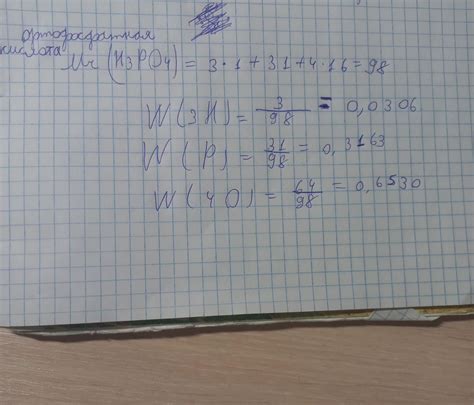 ортофосфатная
кислота
Mr (H3PO4) = 3·1+31+4·16=98
W (3H) = 3/98 = 0,0306
W (P) = 31/98 = 0,3163
W (4O) = 64/98 = 0,6530